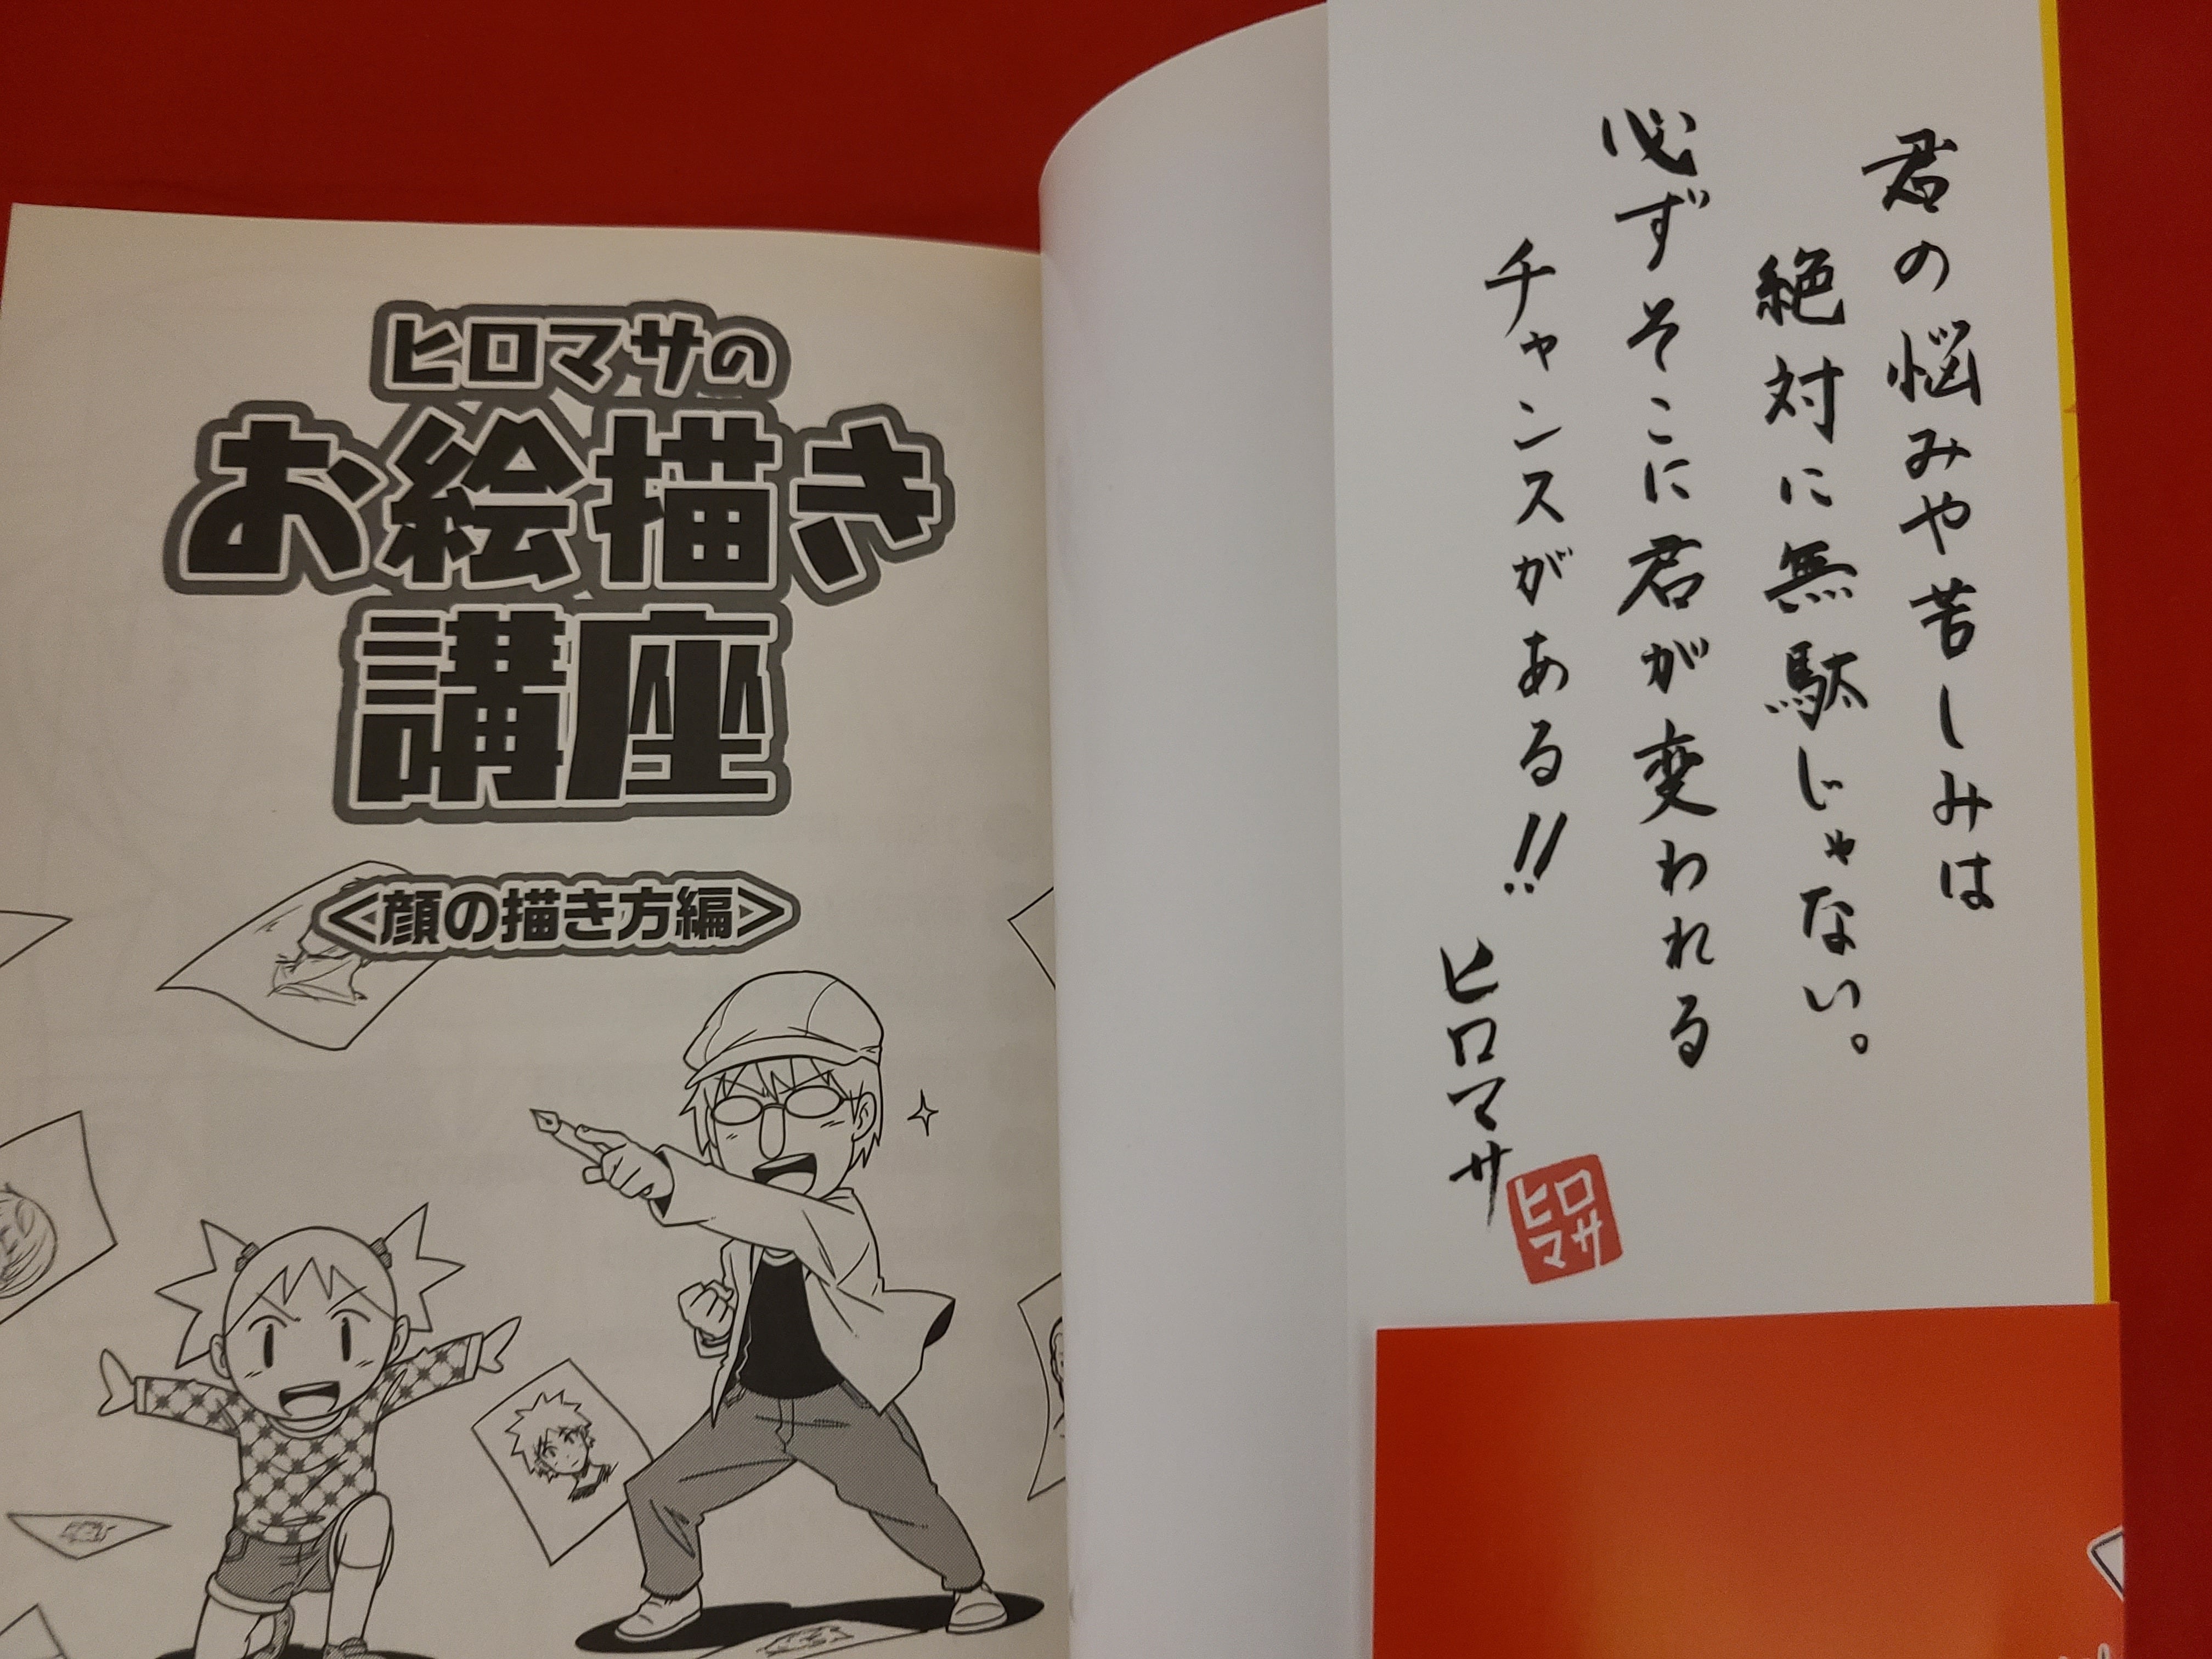 君の悩みや苦しみは
絶対に無駄じゃない。
必ずそこに君が変われる
チャンスがある!!
ヒロマサ
ヒロ
マサ
ヒロマサの
お絵描き
講座
<顔の描き方編>